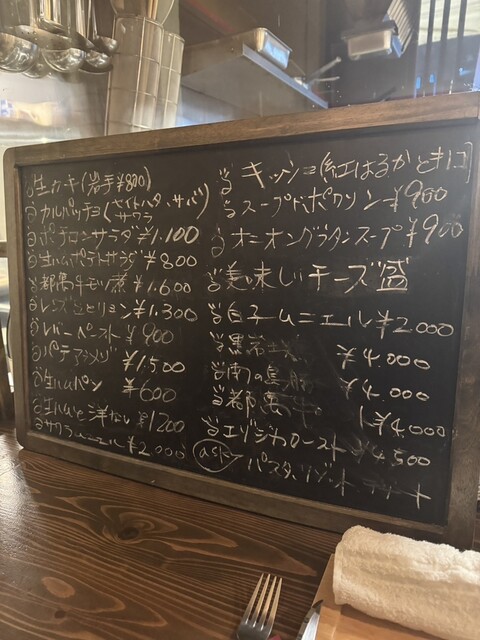 生カキ(岩手¥800)
カルパッチョ(セイトハタ・サバ)
サワラ
ポテロンサラダ¥1.100
生ハムポテトサラダ¥800
都萬牛モツ煮 ¥1.600
レンズ豆とリヨン ¥1.300
レバーペースト ¥900
パテアンメゾ ¥1.500
生ハムパン ¥600
生ハムと洋なし ¥1200
サワラムニエル¥2.000
キッシュ(紅はるかときのこ)
スープドポワソン¥900
オニオングラタンスープ¥900
美味しいチーズ盛
白子ムニエル¥2000
黒岩土鶏 ¥4.000
南の島豚 ¥4.000
都萬牛 ¥4000
エゾジカロースト ¥4.500
ask パスタ、リゾット デザート